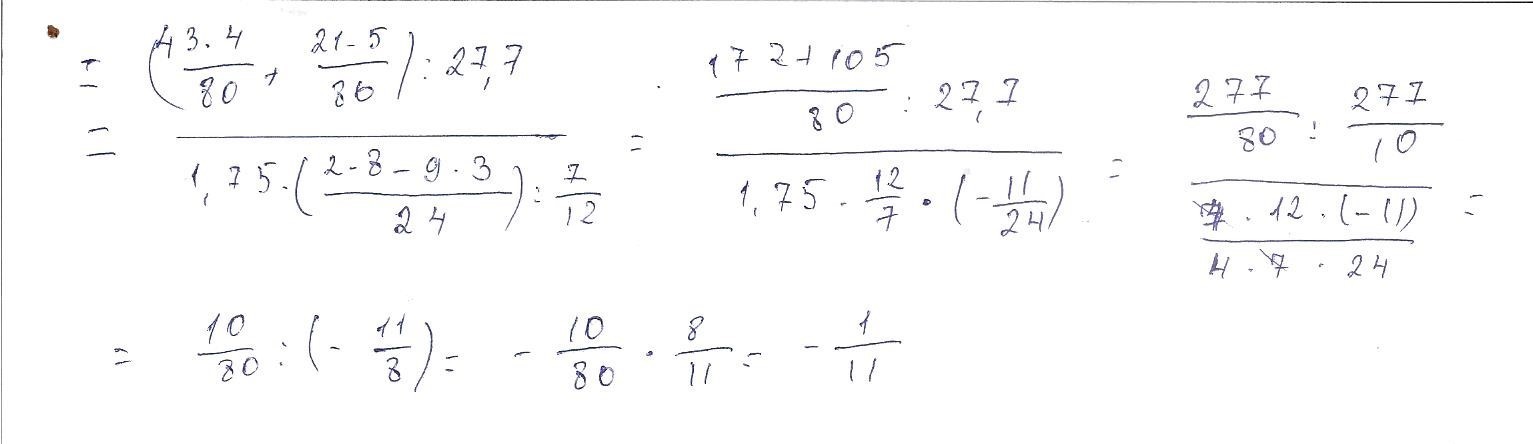 = (43·4/80 + 21·5/80) : 27,7 / 1,75·(2·8-9·3/24) : 7/12 = 172+105/80 : 27,7 / 1,75·12/7·(-11/24) = 277/80 : 277/10 / 7·12·(-11)/4·7·24 =
= 10/80 : (-11/8) = -10/80 · 8/11 = -1/11